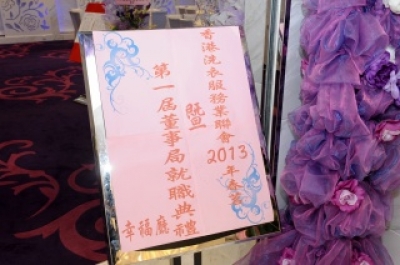 香港洗衣服務業聯會2013年春茗
暨
第一屆董事局就職典禮
幸福廳